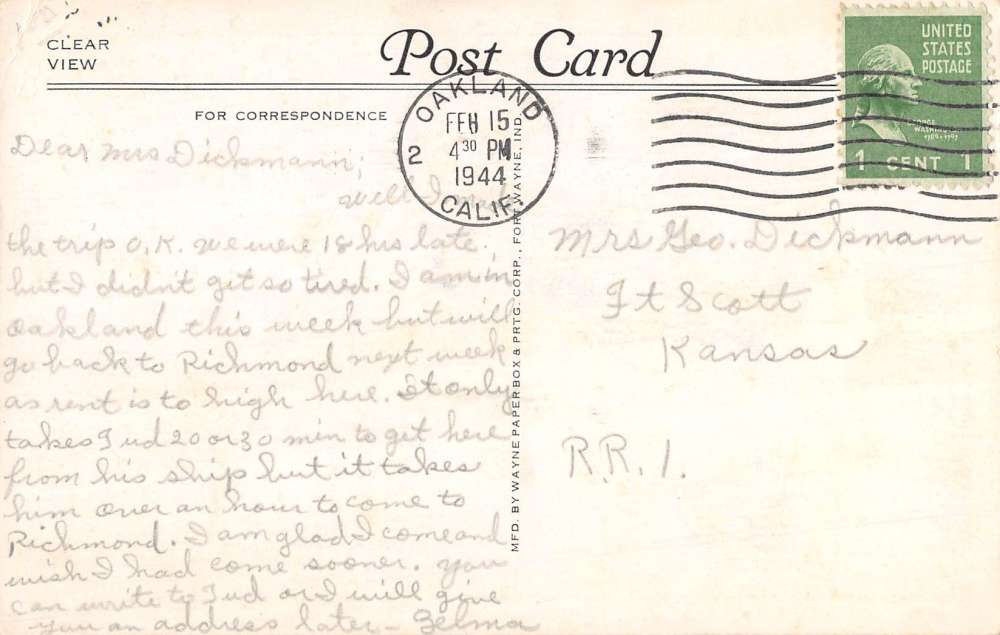 CLEAR
VIEW
Post Card
FOR CORRESPONDENCE
OAKLAND
FEB 15
2 4 30 PM
1944
CALIF.
UNITED
STATES
POSTAGE
GEORGE
WASHINGTON
1789-1797
1 CENT 1
Dear Mrs Dickmann;
Well I made
the trip O.K. We were 18 hrs late.
but I didn't get so tired. I am in
Oakland this week but will
go back to Richmond next week
as rent is to high here. It only
takes Jud 20 or 30 min to get here
from his ship but it takes
him over an hour to come to
Richmond. I am glad I come and
wish I had come sooner. you
can write to Jud or I will give
you an address later - Zelma
MFD. BY WAYNE PAPER BOX & PRTG. CORP., FORT WAYNE, IND.
Mrs Geo. Dickmann
Ft Scott
Kansas
R.R. 1.